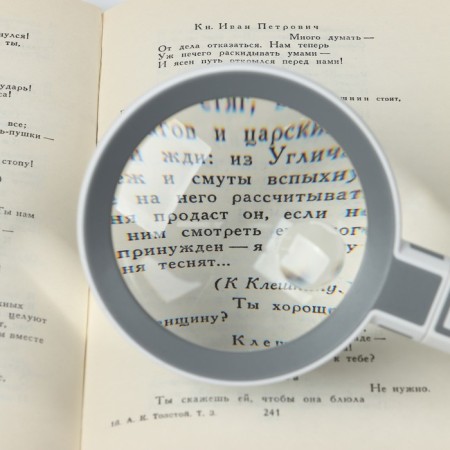 ударь!
все;
ть-пушки—
стопу!
Ты нам
целуют
ы вместе
Кн. Иван Петрович
Много думать—
От дела отказаться. Нам теперь
Уж нечего раскидывать умами—
И ясен путь открылся перед нами!
стоят,
и царски
жди: из Углич
и смуты вспыхи
на него рассчитыват
продаст он, если
ним смотреть
принужден — я
теснят...
(К Клешнину.)
Ты хорош
енщину?
Клеш
к тебе?
Не нужно.
Ты скажешь ей, чтобы она блюла
А. К. Толстой, т. 3
241